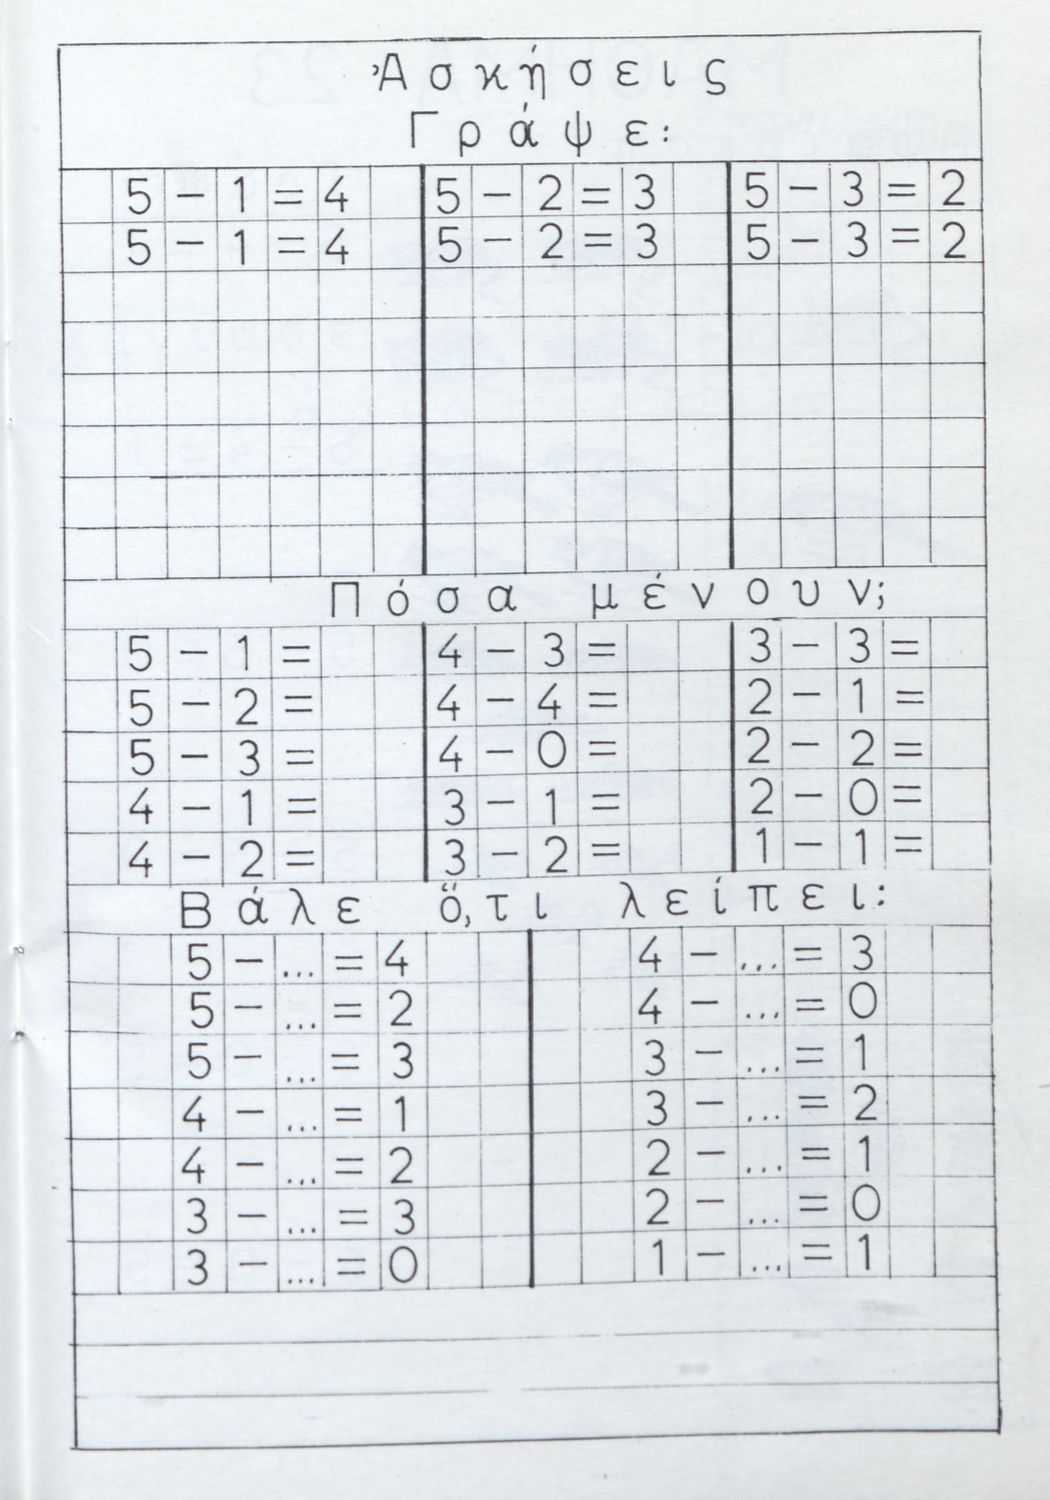 Ἀσκήσεις
Γράψε:
5 - 1 = 4 5 - 2 = 3 5 - 3 = 2
5 - 1 = 4 5 - 2 = 3 5 - 3 = 2
Πόσα μένουν;
5 - 1 = 4 - 3 = 3 - 3 =
5 - 2 = 4 - 4 = 2 - 1 =
5 - 3 = 4 - 0 = 2 - 2 =
4 - 1 = 3 - 1 = 2 - 0 =
4 - 2 = 3 - 2 = 1 - 1 =
Βάλε ὅ,τι λείπει:
5 - ... = 4 4 - ... = 3
5 - ... = 2 4 - ... = 0
5 - ... = 3 3 - ... = 1
4 - ... = 1 3 - ... = 2
4 - ... = 2 2 - ... = 1
3 - ... = 3 2 - ... = 0
3 - ... = 0 1 - ... = 1